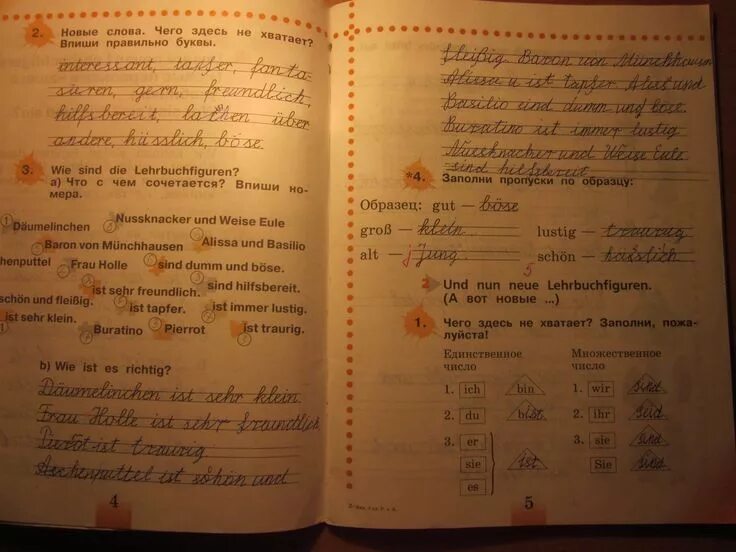 2. Новые слова. Чего здесь не хватает?
Впиши правильно буквы.
interessant, tapfer, fanta-
sieren, gern, freundlich,
hilfsbereit, lachen über
andere, hässlich, böse.
3. Wie sind die Lehrbuchfiguren?
a) Что с чем сочетается? Впиши но-
мера.
1 Däumelinchen
5 Nussknacker und Weise Eule
Baron von Münchhausen
Alissa und Basilio
henputtel
Frau Holle
sind dumm und böse.
ist sehr freundlich.
sind hilfsbereit.
schön und fleißig.
ist tapfer.
ist immer lustig.
ist sehr klein.
Buratino
Pierrot
ist traurig.
b) Wie ist es richtig?
Däumelinchen ist sehr klein.
Frau Holle ist sehr freundlich
Pierot ist traurig
Aschenputtel ist schön und
4
fleißig. Baron von Münchhausen
ist tapfer Alissa und
Basilio sind dumm und böse.
Buratino ist immer lustig.
Nussknacker und Weise Eule
sind hilfsbereit
*4. Заполни пропуски по образцу:
Образец: gut — böse
groß — klein
lustig — traurig
alt — jung
schön — hässlich
5
2 Und nun neue Lehrbuchfiguren.
(А вот новые ...)
1. Чего здесь не хватает? Заполни, пожа-
луйста!
Единственное число
Множественное число
1. ich bin
1. wir sind
2. du bist
2. ihr seid
3. er
3. sie sind
sie ist
Sie sind
es
5